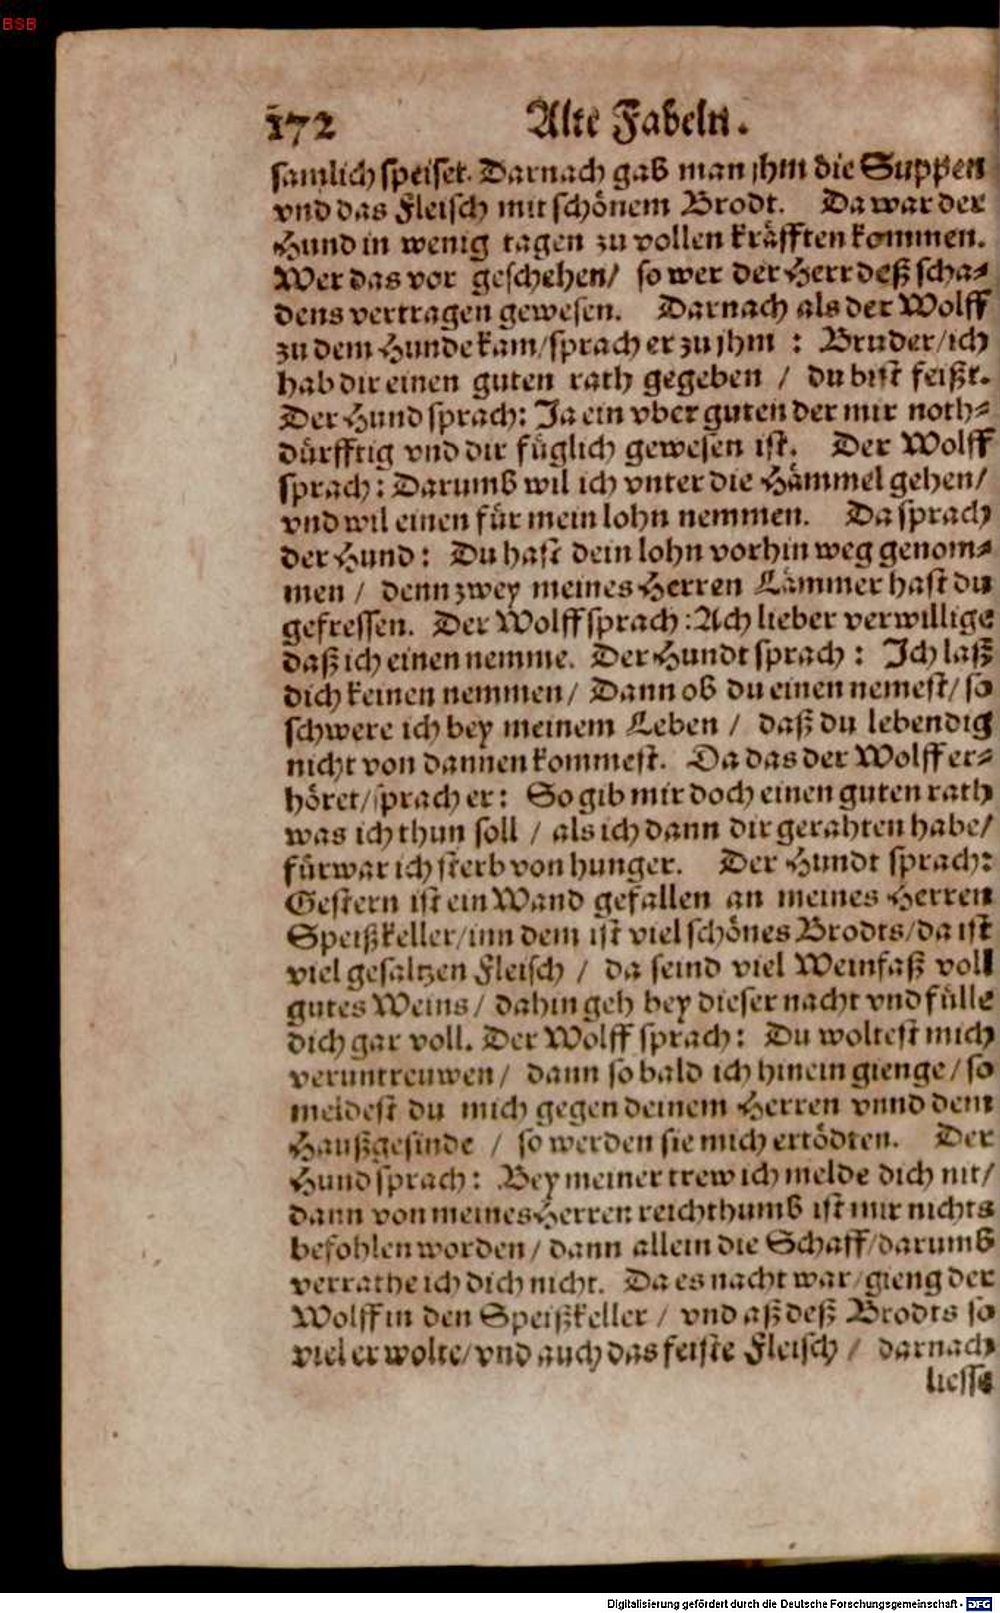 BSB
172 Alte Fabeln.
samlich speiset. Darnach gab man jhm die Suppen
vnd das Fleisch mit schönem Brodt. Da war der
Hund in wenig tagen zu vollen kräfften kommen.
Wer das vor geschehen/ so wer der Herr deß scha⸗
dens vertragen gewesen. Darnach als der Wolff
zu dem Hunde kam/sprach er zu jhm : Bruder/ich
hab dir einen guten rath gegeben / du bist feißt.
Der Hund sprach: Ja ein vber guten der mir noth⸗
dürfftig vnd dir füglich gewesen ist. Der Wolff
sprach: Darumb wil ich vnter die Hämmel gehen/
vnd wil einen für mein lohn nemmen. Da sprach
der Hund: Du hast dein lohn vorhin weg genom⸗
men / denn zwey meines Herren Lämmer hast du
gefressen. Der Wolff sprach: Ach lieber verwillige
daß ich einen nemme. Der Hundt sprach: Ich laß
dich keinen nemmen/ Dann ob du einen nemest/ so
schwere ich bey meinem Leben / daß du lebendig
nicht von dannen kommest. Da das der Wolff er⸗
höret/sprach er: So gib mir doch einen guten rath
was ich thun soll / als ich dann dir gerahten habe/
fürwar ich sterb von hunger. Der Hundt sprach:
Gestern ist ein Wand gefallen an meines Herren
Speißkeller/inn dem ist viel schönes Brodts/da ist
viel gesaltzen Fleisch / da seind viel Weinfaß voll
gutes Weins/ dahin geh bey dieser nacht vnd fülle
dich gar voll. Der Wolff sprach: Du woltest mich
veruntreuwen/ dann so bald ich hinein gienge/ so
meldest du mich gegen deinem Herren vnnd dem
Haußgesinde / so werden sie mich ertödten. Der
Hund sprach: Bey meiner trew ich melde dich nit/
dann von meines Herren reichthumb ist mir nichts
befohlen worden/ dann allein die Schaff/darumb
verrathe ich dich nicht. Da es nacht war/gieng der
Wolff in den Speißkeller / vnd aß deß Brodts so
viel er wolte/vnd auch das feiste Fleisch / darnach
liesse
Digitalisierung gefördert durch die Deutsche Forschungsgemeinschaft - DFG